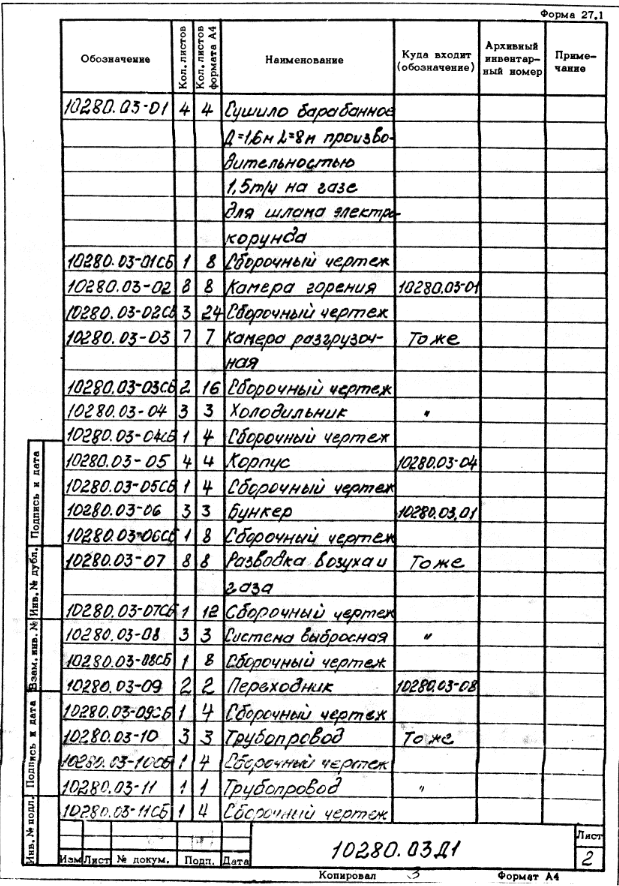 Форма 27.1
Обозначение Кол. листов Кол. листов формата А4 Наименование Куда входит (обозначение) Архивный инвентар-ный номер Приме-чание
10280.03-01 4 4 Сушило барабанное
Д=1,6м L=8м произво-
дительностью
1,5т/ч на газе
для шлама электро-
корунда
10280.03-01СБ 1 8 Сборочный чертеж
10280.03-02 8 8 Камера горения 10280.03-01
10280.03-02СБ 3 24 Сборочный чертеж
10280.03-03 7 7 Камера разгрузоч- То же
ная
10280.03-03СБ 2 16 Сборочный чертеж
10280.03-04 3 3 Холодильник "
10280.03-04СБ 1 4 Сборочный чертеж
10280.03-05 4 4 Корпус 10280.03-04
10280.03-05СБ 1 4 Сборочный чертеж
10280.03-06 3 3 Бункер 10280.03.01
10280.03-06СБ 1 8 Сборочный чертеж
10280.03-07 8 8 Разводка воздуха и То же
газа
10280.03-07СБ 1 12 Сборочный чертеж
10280.03-08 3 3 Система выбросная "
10280.03-08СБ 1 8 Сборочный чертеж
10280.03-09 2 2 Переходник 10280.03-08
10280.03-09СБ 1 4 Сборочный чертеж
10280.03-10 3 3 Трубопровод То же
10280.03-10СБ 1 4 Сборочный чертеж
10280.03-11 1 1 Трубопровод "
10280.03-11СБ 1 4 Сборочный чертеж
Подпись и дата
Инв. № дубл.
Взам. инв. №
Подпись и дата
Инв. № подл.
Изм Лист № докум. Подп. Дата
10280.03Д1
Лист
2
Копировал Формат А4